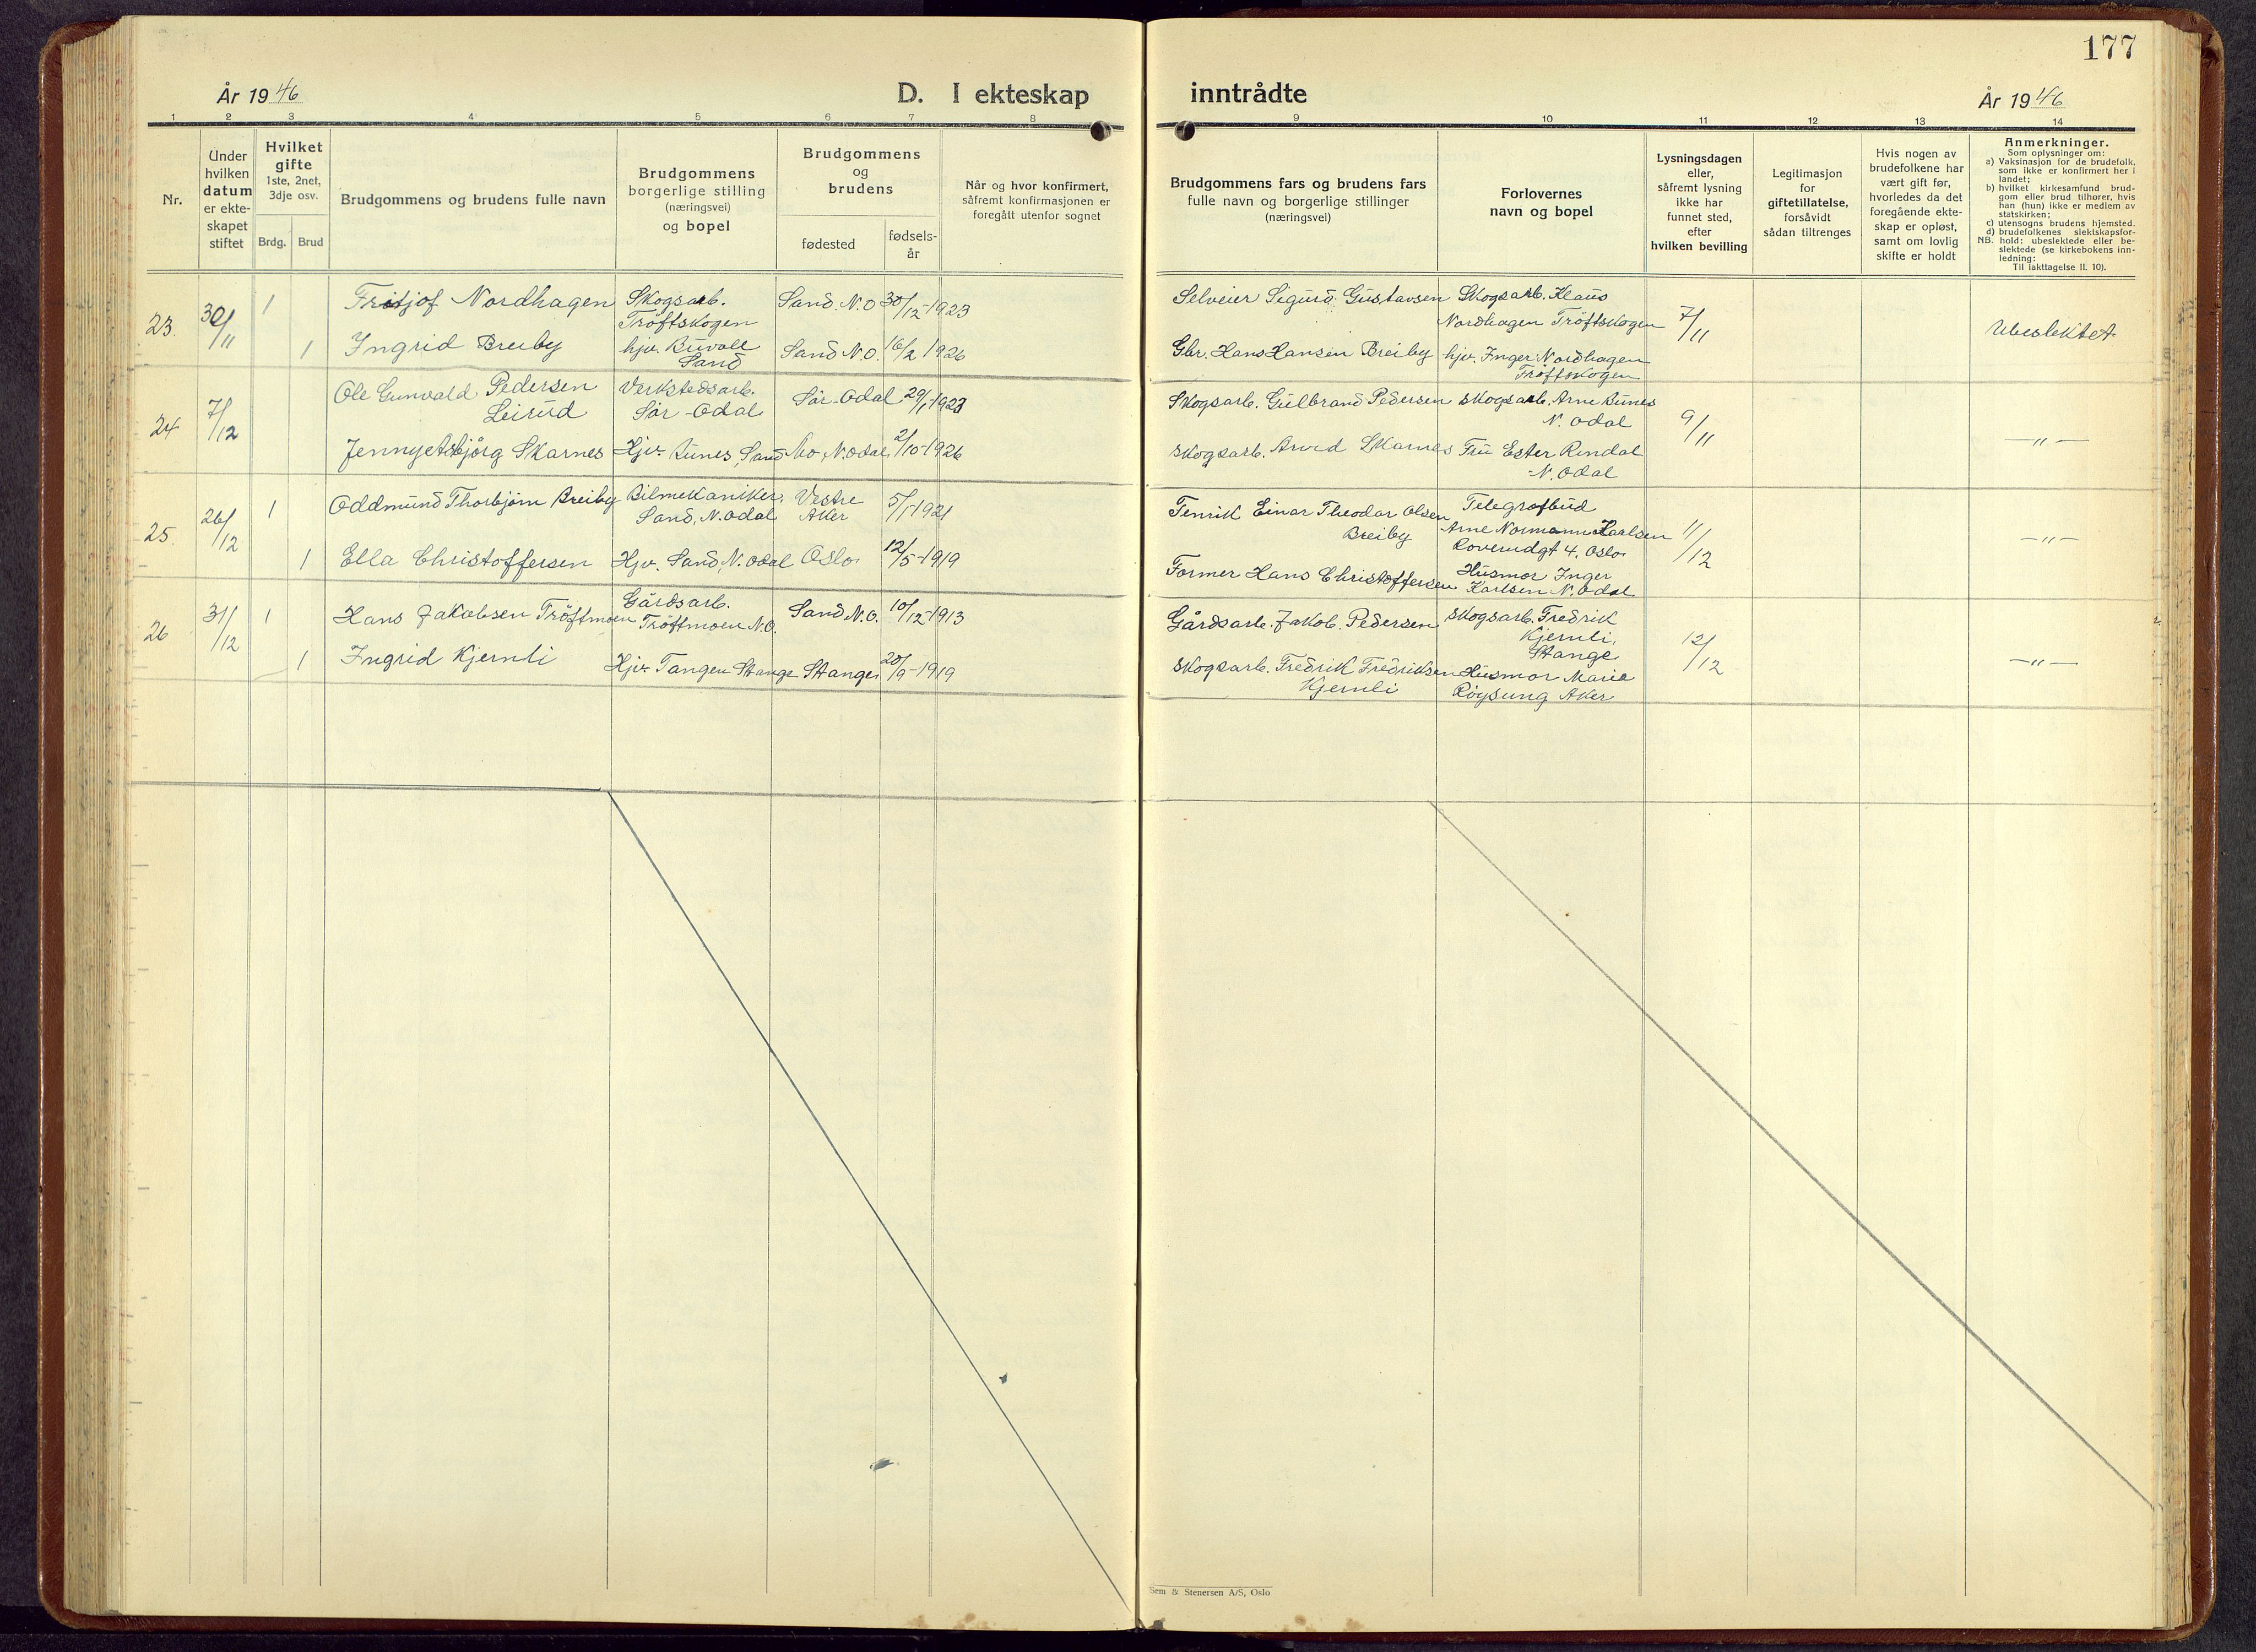 177
År 1946
D. I ekteskap inntrådte
År 1946
1 2 3 4 5 6 7 8 9 10 11 12 13 14
Nr.
Under
hvilken
datum
er ekte-
skapet
stiftet
Hvilket
gifte
1ste, 2net,
3dje osv.
Brdg.
Brud
Brudgommens og brudens fulle navn
Brudgommens
borgerlige stilling
(næringsvei)
og bopel
Brudgommens
og
brudens
fødested
fødsels-
år
Når og hvor konfirmert,
såfremt konfirmasjonen er
foregått utenfor sognet
Brudgommens fars og brudens fars
fulle navn og borgerlige stillinger
(næringsvei)
Forlovernes
navn og bopel
Lysningsdagen
eller,
såfremt lysning
ikke har
funnet sted,
efter
hvilken bevilling
Legitimasjon
for
giftetillatelse,
forsåvidt
sådan tiltrenges
Hvis nogen av
brudefolkene har
vært gift før,
hvorledes da det
foregående ekte-
skap er opløst,
samt om lovlig
skifte er holdt
Anmerkninger.
Som oplysninger om:
a) Vaksinasjon for de brudefolk,
som ikke er konfirmert her i
landet;
b) hvilket kirkesamfund brud-
gom eller brud tilhører, hvis
han (hun) ikke er medlem av
statskirken;
c) utensogns brudens hjemsted.
d) brudefolkenes slektskapsfor-
NB. hold: ubeslektede eller be-
slektede (se kirkebokens inn-
ledning:
Til iakttagelse II. 10).
23.
30/11
1
Fritjof Nordhagen
Skogsarb.
Tröftskogen
Sand. N.O
30/12-1923
Selveier Sigurd Gustavsen
Skogsarb. Klaus
Nordhagen Tröftskogen
7/11
Ubeslektet
1
Ingrid Breiby
hjv. Buvoll
Sand
Sand N.O.
16/2 1926
Gbr. Hans Hansen Breiby
hjv. Inger Nordhagen
Tröftskogen
24
7/12
Ole Gunvald Pedersen
Leirud
Verkstedsarb.
Sør-Odal
Sør-Odal
29/1-1923
Skogsarb. Gulbrand Pedersen
Skogsarb. Arne Bunes
N. Odal
9/11
—"—
Skarnes
Hjv. Bunes, Sand
Mo, N. Odal
2/10-1926
Skogsarb. Arvid Skarnes
Fru Ester Rendal
N. Odal
25.
26/12
1
Oddmund Thorbjørn Breiby
Bilmekaniker
Sand, N. Odal
Vestre
Aker
5/1 1921
Einar Theodor Olsen
Breiby
Telegrafbud
Arne Normann Karlsen
4. Oslo
11/12
—"—
1
Ella Christoffersen
Hjv. Sand, N. Odal
Oslo
12/5-1919
Former Hans Christoffersen
Husmor Inger
Karlsen N. Odal
26
31/12
1
Hans Jakobsen Tröftmoen
Gårdsarb.
Tröftmoen N.O.
Sand N.O.
10/12-1913
Gårdsarb. Jakob Pedersen
Skogsarb. Fredrik
Kjernli,
Stange
12/12
—"—
1
Ingrid Kjernli
Hjv. Tangen Stange
Stange
20/9-1919
Skogsarb. Fredrik Fredriksen
Kjernli
Husmor Marie
Röysung Aker
Sem & Stenersen A/S, Oslo